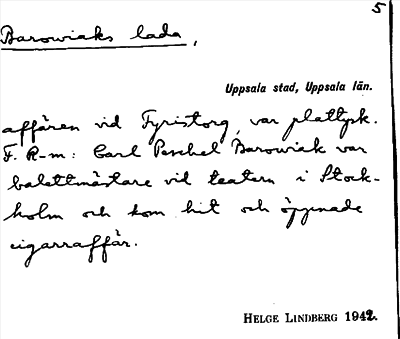 5
Barowiaks lada,
Uppsala stad, Uppsala län.
affären vid Fyristorg, var plattysk.
F. R-m: Carl Peschel Barowiak var
balettmästare vid teatern i Stock-
holm och kom hit och öppnade
cigarraffär.
HELGE LINDBERG 1942.